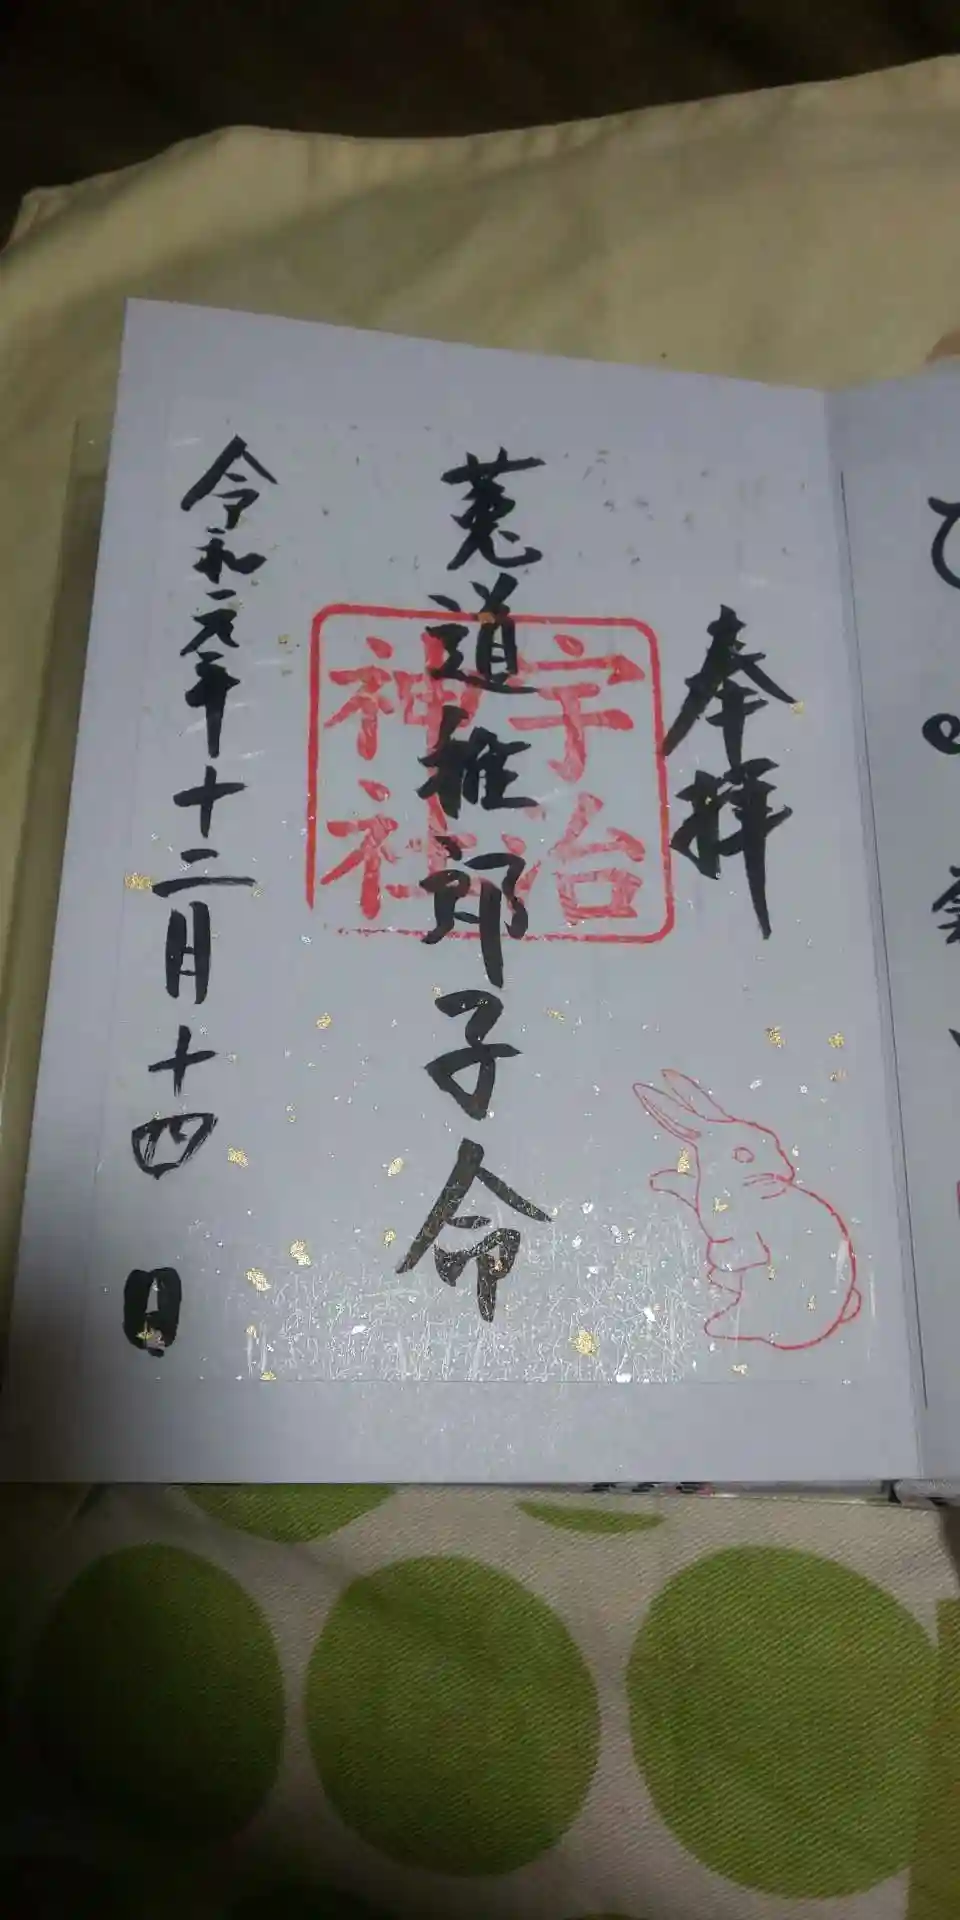 奉拝
菟道稚郎子命
宇治
神社
令和元年十二月十四日